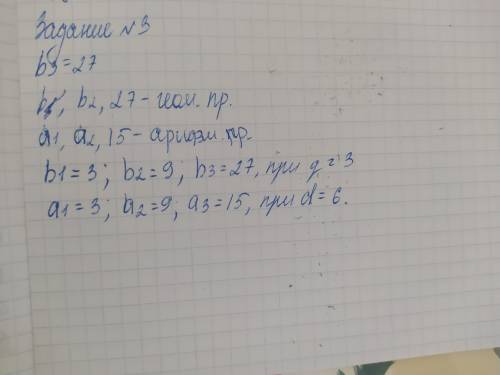 Задание №3
b3=27
b1, b2, 27 - геом. пр.
a1, a2, 15 - арифм. пр.
b1=3; b2=9; b3=27, при q=3
a1=3; a2=9; a3=15, при d=6.